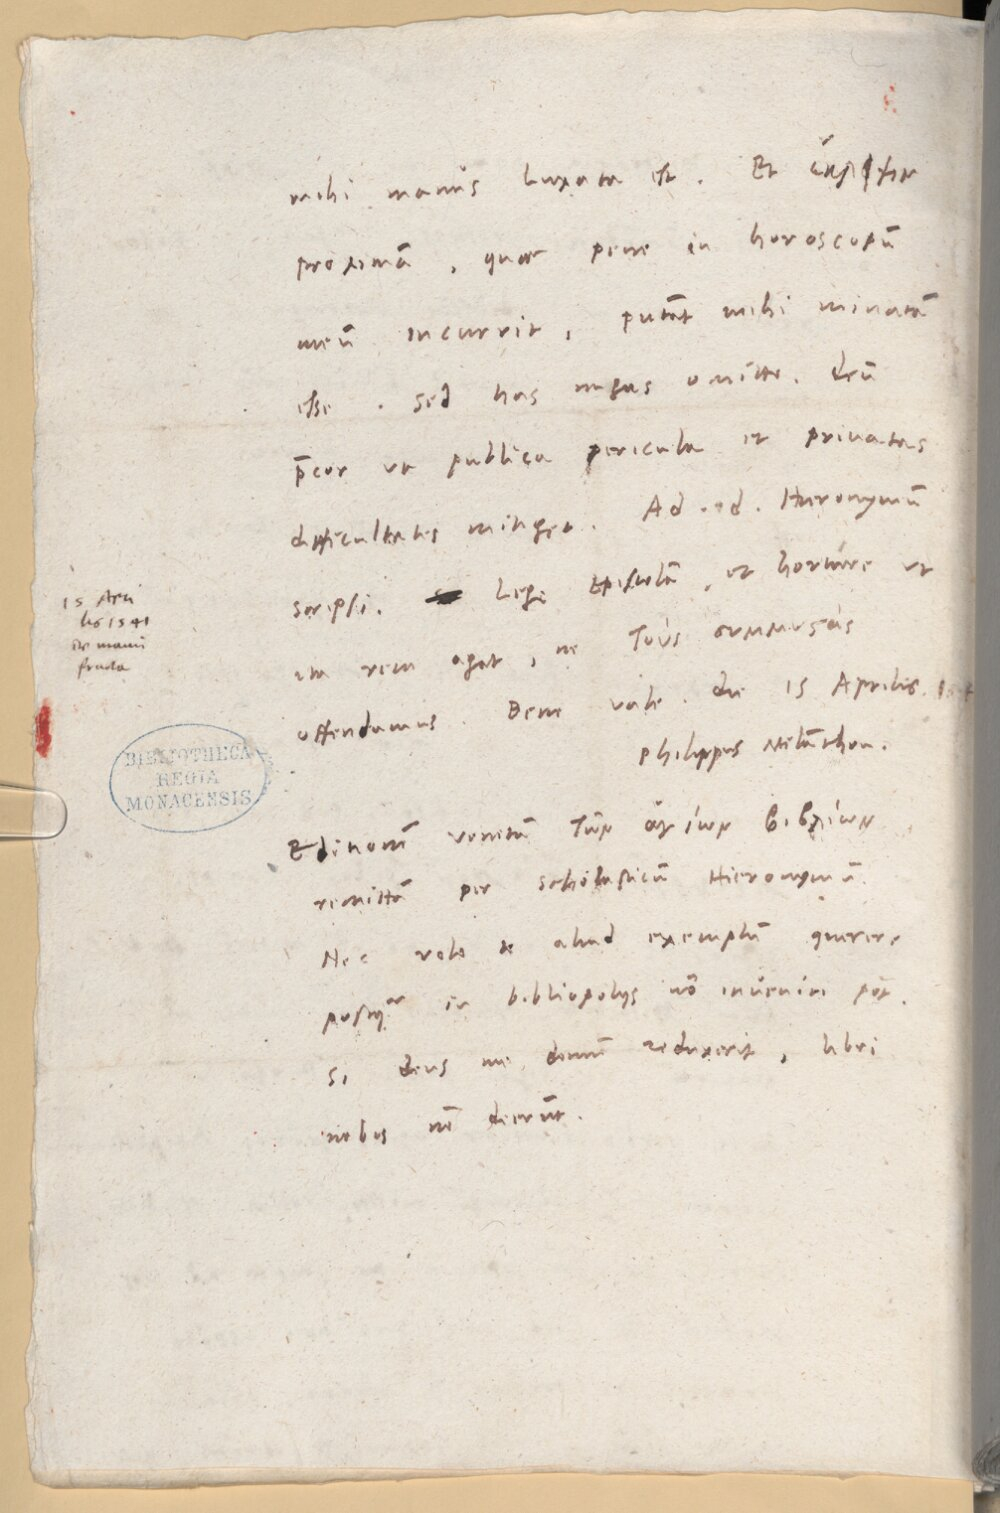 mihi manus luxata est. Et ἔκλειψιν
proximā, quae pene in horoscopū
meū incurrit, putāt mihi minatā
esse. Sed has nugas omitto. deū
p̄cor ut publica pericula et priuatas
difficultates mitiget. Ad .d. Hieronymū
scripsi. Lege Epistolā, et hortare ut
ita rem agat, ne τοὺς συμμύστας
offendamus. Bene vale. die 15 Aprilis.
philippus Melāthon.
15 Apri
lis 1541
de manu
fracta
BIBLIOTHECA
REGIA
MONACENSIS
Editionē venetā τῶν ἁγίων βιβλίων
remittā per scholasticū Hieronymū.
Nec volo te aliud exemplū querere
postq̄ in bibliopolijs nō inueniri pōt.
Si deus me domū reduxerit, libri
nobis nō deerūt.